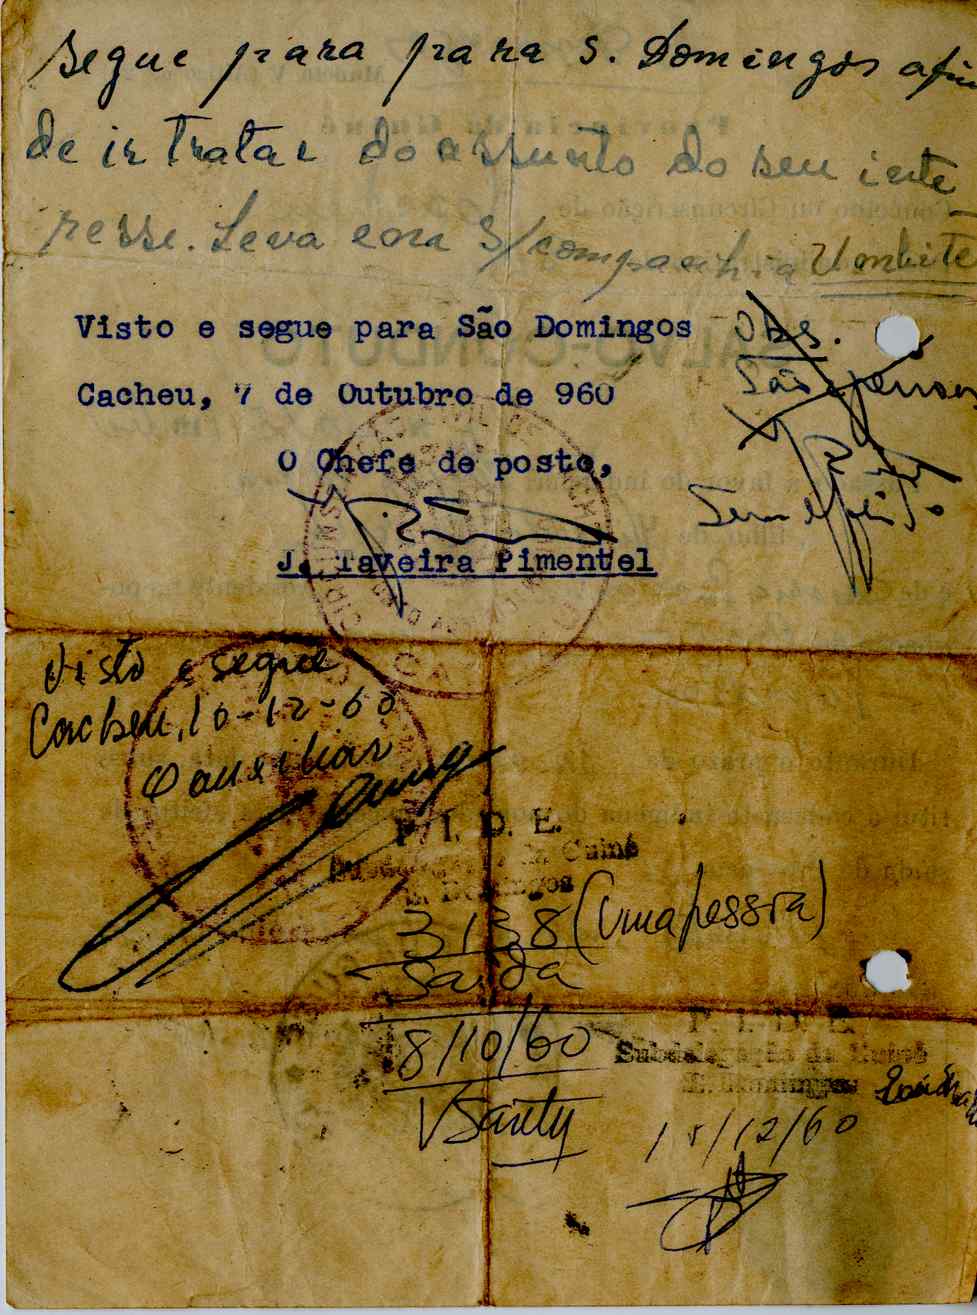 segue para para S. Domingos afim
de ir Tratar do assunto do seu inte
resse. Leva eora S/companhia Umbite
Visto e segue para São Domingos
Obs.
Cacheu, 7 de Outubro de 960
São
O Chefe de posto,
Sem efeito
J. Taveira Pimentel
Visto e segue
Cacheu, 10-12-60
O auxiliar
P. I. D. E.
Subdelegação da Guiné
S. Domingos
3138 (Uma pessoa)
Saida
8/10/60
P. I. D. E.
Subdelegação da Guiné
S. Domingos
/12/60